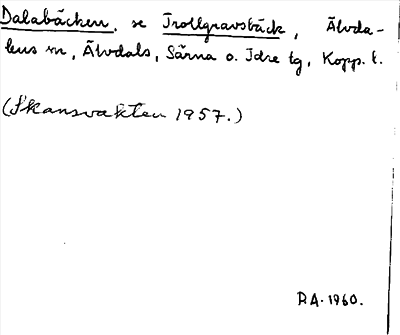 Dalabäcken, se Trollgravsbäck, Älvda-
lens sn, Älvdals, Särna o. Idre tg, Kopp. l.
(Skansvakten 1957.)
RA. 1960.